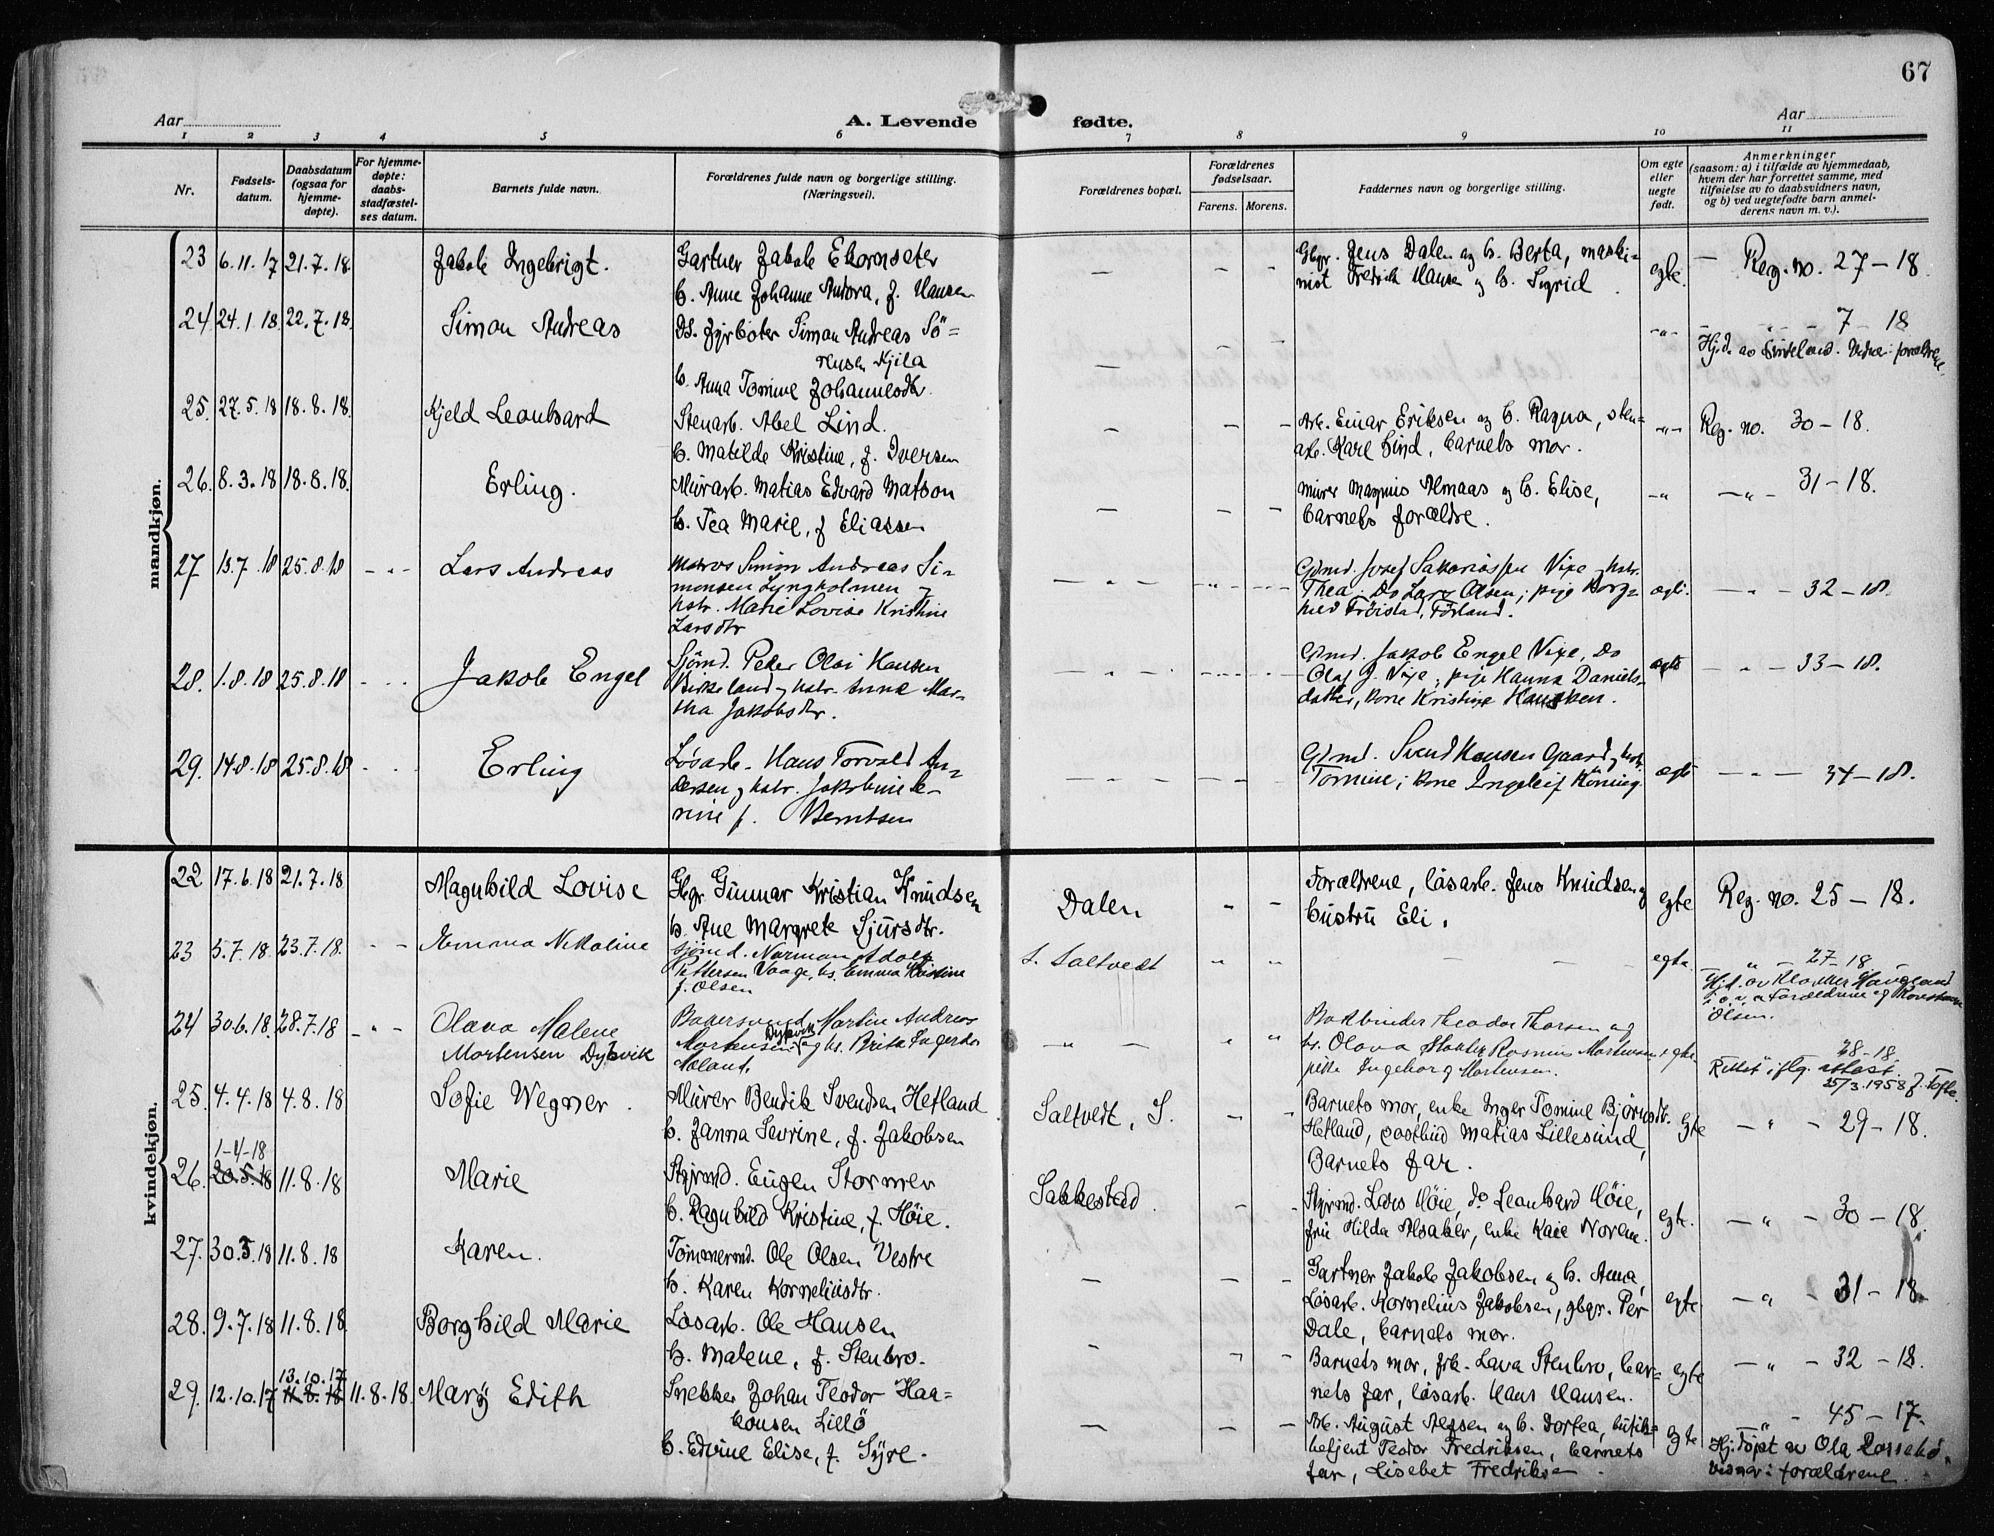 67
Aar
A. Levende fødte.
Aar
1 2 3 4 5 6 7 8 9 10 11
Nr.
Fødsels-
datum.
Daabsdatum
(ogsaa for
hjemme-
døpte).
For hjemme-
døpte:
daabs-
stadfæstel-
ses datum.
Barnets fulde navn.
Forældrenes fulde navn og borgerlige stilling.
(Næringsvei).
Forældrenes bopæl.
Forældrenes
fødselsaar.
Farens. Morens.
Faddernes navn og borgerlige stilling.
Om egte
eller
uegte
født.
Anmerkninger
(saasom: a) i tilfælde av hjemmedaab,
hvem der har forrettet samme, med
tilføielse av to daabsvidners navn,
og b) ved uegtefødte barn anmel-
derens navn m. v.).
mandkjøn.
23 6.11.17 21.7.18. Jakob Ingebrigt.
Gartner Jakob Ekornsæter
h. Anne Johanne Andora, f. Hansen
Gbgr. Jens Dalen og h. Berta, maski-
nist Fredrik Hansen og h. Sigrid
egte. — Reg. no. 27 – 18.
24 24.1.18. 22.7.18. Simon Andreas
Ds. fyrbøter Simon Andreas Sö-
Kjila
h. Anna Tomine Johannesdtr.
-"- 7 – 18
Hj.d. av forældrene.
25. 27.5.18 18.8.18. Kjeld Leonhard
Stenarb. Abel Lind.
h. Matilde Kristine, f. Iversen
Arb. Einar Eriksen og h. Ragna, sten-
arb. Karl Lind, barnets mor.
-"- Reg. no. 30 – 18.
26. 8.3.18 18.8.18. Erling.
Murarb. Matias Edvard Matson
h. Tea Marie, f Eliassen
murer Magnus Almaas og h. Elise,
barnets forældre.
-"- -"- 31 – 18.
27 13.7.18 25.8.18 - " - Lars Andreas
Simon Andreas Si-
monsen Lyngholmen og
hstr. Marie Lovise Kristine
Larsdtr
Gdmd. Josef Sakariassen Vixe hstr.
Thea; Do Lars Olsen; pige Borg-
hild Tröistad, Førland.
egte. - " - 32 – 18.
28. 1.8.18 25.8.18 Jakob Engel
Sjömd. Peder Olai Hansen
Birkeland og hstr. Anna Mar-
tha Jakobsdtr.
Gdmd. Jakob Engel Vixe, Do
Olaf J. Vixe; pige Hanna Daniels-
datter, kone Kristine Hansen.
egte - " - 33 – 18.
29. 14.8.18 25.8.18 Erling
Løsarb. Hans Torvald An-
dersen og hstr. Jakobine Se-
rine f. Berntsen
Gdmd. Svend Hansen Gaard, hstr.
Tomine; kone Ingeleif Köning.
egte - " - 34 – 18.
kvindekjøn.
22 17.6.18 21.7.18 Magnhild Lovise
Gbgr Gunnar Kristian Knudsen
h. Ane Margrete Sjursdtr.
Dalen
Forældrene, løsarb. Jens Knudsen og
hustru Eli.
egte Reg. no. 25 – 18.
23 5.7.18 23.7.18. Emma Nikoline
sjömd. Norman Adolf
Pettersen Vaage, hs. Emma Kristine
f. Olsen
S. Saltvedt
egte. " 27–18
Hjd. av klokker Haugland
forældrene og
Olsen.
24 30.6.18. 28.7.18 - " - Olava Malene
Mortensen Dybvik
Martin Andreas
Mortensen Dybvik og hs. Brita Ingerdtr
Aaland.
Bokbinder Theodor Thorsen og
hs. Olava Rasmus Mortensen
pike Ingeborg Mortensen.
egte 28–18.
Rettet iflg. attest.
25/3.1958 J. Tofte.
25. 4.4.18 4.8.18 Sofie Wegner.
Murer Bendik Svendsen Hetland
h. Janna Sevrine, f. Jakobsen
Saltvedt, S.
Barnets mor, enke Inger Tomine Bjørnsdtr.
Hetland, postbud Matias Lillesund,
Barnets far.
egte - " - 29 – 18.
1-4-18
26. 20.5.18 11.8.18 Marie
Styrmd. Eugen Stormer
h. Ragnhild Kristine, f. Höie.
Sakkestad.
Styrmd. Lars Höie, do Leonhard Höie,
fru Hilda Alsaker, enke Kaie Norem.
egte. - " - 30 – 18.
27. 30.5.18 11.8.18 Karen.
Tömmermd. Ole Olsen Vestre
h. Karen Korneliusdtr.
Gartner Jakob Jakobsen og h. Anna,
Løsarb. Kornelius Jakobsen, gbgr. Per
Dale, barnets mor.
egte - " - 31 – 18.
28. 9.7.18 11.8.18 Borghild Marie
Løsarb. Ole Hansen
h. Malene, f. Stenbro.
Barnets mor, frk. Lava Stenbro, bar-
nets far, løsarb. Hans Hansen.
egte - " - 32 – 18.
13.10.17
29. 12.10.17 11.8.18 11.8.18. Mary Edith
Snekker Johan Teodor Haa-
konsen Lillö
h. Edvine Elise, f. Syre.
Arb. August Alfsen og h. Dortea, butik-
betjent Teodor Fredriksen, barnets
far, Lisebet Fredriksen
egte " - 45 – 17.
Hj.döpt av Ola Rossebö.
Vidner: forældrene.